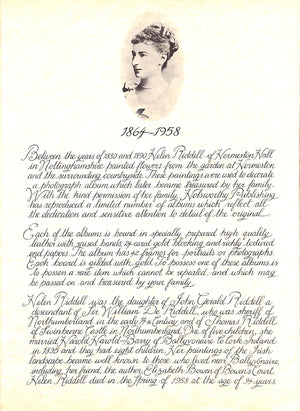 1864~1958
Between the years of 1880 and 1890 Helen Riddell of Hermeston Hall
in Nottinghamshire painted flowers from the garden at Hermeston
and the surrounding countryside. These paintings were used to decorate
a photograph album which later became treasured by her family.
With the kind permission of her family, Holsworthy Publishing
has reproduced a limited number of albums which reflect all
the dedication and sensitive attention to detail of the original.
Each of the albums is bound in specially prepared high quality
leather with raised bands, 24 carat gold blocking and richly textured
end papers. The album has 42 frames for portraits or photographs.
Each board is gilded with gold. To possess one of these albums is
to possess a rare item which cannot be repeated and which may
be passed on and treasured by your family.
Helen Riddell was the daughter of John Gerald Riddell a
descendant of Sir William De Riddell, who was sheriff of
Northumberland in the early 14th Century and of Thomas Riddell
of Swinburne Castle in Northumberland. One of five children, she
married Harold Harold-Barry of Ballyvonaire Co Cork Ireland
in 1895 and they had eight children. Her paintings of the Irish
landscape became well known to those who lived near Ballyvonaire,
including her friend, the author Elizabeth Bowen of Bowen's Court.
Helen Riddell died in the Spring of 1958 at the age of 94 years